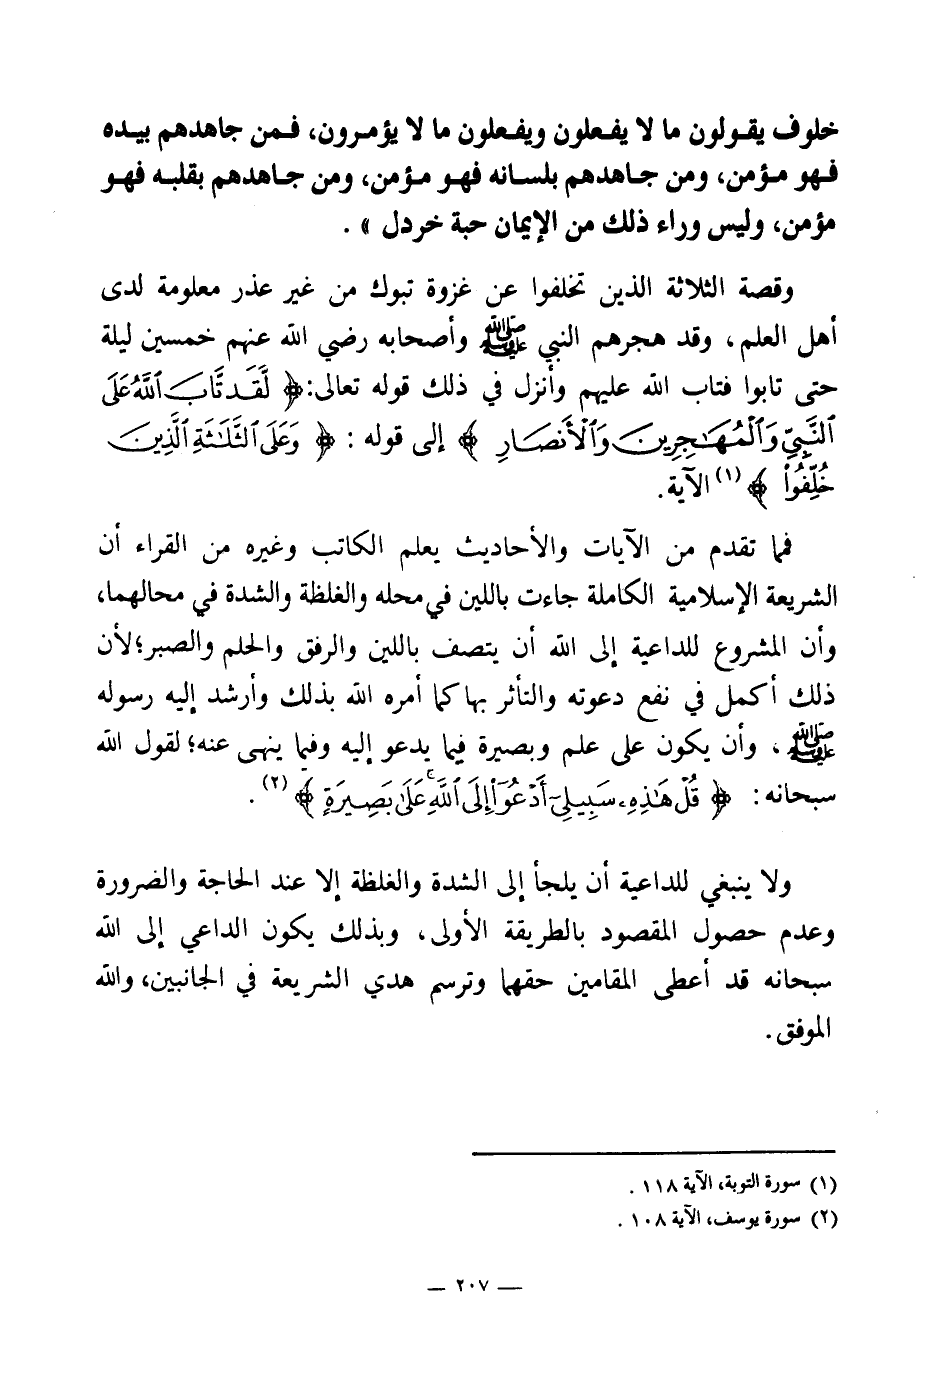 خلوف يقولون ما لا يفعلون ويفعلون ما لا يؤمرون، فمن جاهدهم بيده
فهو مؤمن، ومن جاهدهم بلسانه فهو مؤمن، ومن جاهدهم بقلبه فهو
مؤمن، وليس وراء ذلك من الإيمان حبة خردل » .
وقصة الثلاثة الذين تخلفوا عن غزوة تبوك من غير عذر معلومة لدى
أهل العلم، وقد هجرهم النبي ﷺ وأصحابه رضي الله عنهم خمسين ليلة
حتى تابوا فتاب الله عليهم وأنزل في ذلك قوله تعالى: ﴿ لَّقَد تَّابَ ٱللَّهُ عَلَى
ٱلنَّبِيِّ وَٱلْمُهَٰجِرِينَ وَٱلْأَنصَارِ ﴾ إلى قوله : ﴿ وَعَلَى ٱلثَّلَٰثَةِ ٱلَّذِينَ
خُلِّفُوا۟ ﴾ (١) الآية.
فما تقدم من الآيات والأحاديث يعلم الكاتب وغيره من القراء أن
الشريعة الإسلامية الكاملة جاءت باللين في محله والغلظة والشدة في محالهما،
وأن المشروع للداعية إلى الله أن يتصف باللين والرفق والحلم والصبر؛ لأن
ذلك أكمل في نفع دعوته والتأثر بها كما أمره الله بذلك وأرشد إليه رسوله
ﷺ ، وأن يكون على علم وبصيرة فيما يدعو إليه وفيما ينهى عنه؛ لقول الله
سبحانه : ﴿ قُلْ هَٰذِهِۦ سَبِيلِىٓ أَدْعُوٓا۟ إِلَى ٱللَّهِ ۚ عَلَىٰ بَصِيرَةٍ ﴾ (٢) .
ولا ينبغي للداعية أن يلجأ إلى الشدة والغلظة إلا عند الحاجة والضرورة
وعدم حصول المقصود بالطريقة الأولى، وبذلك يكون الداعي إلى الله
سبحانه قد أعطى المقامين حقهما وترسم هدي الشريعة في الجانبين، والله
الموفق .
(١) سورة التوبة، الآية ١١٨ .
(٢) سورة يوسف، الآية ١٠٨ .
— ٢٠٧ —